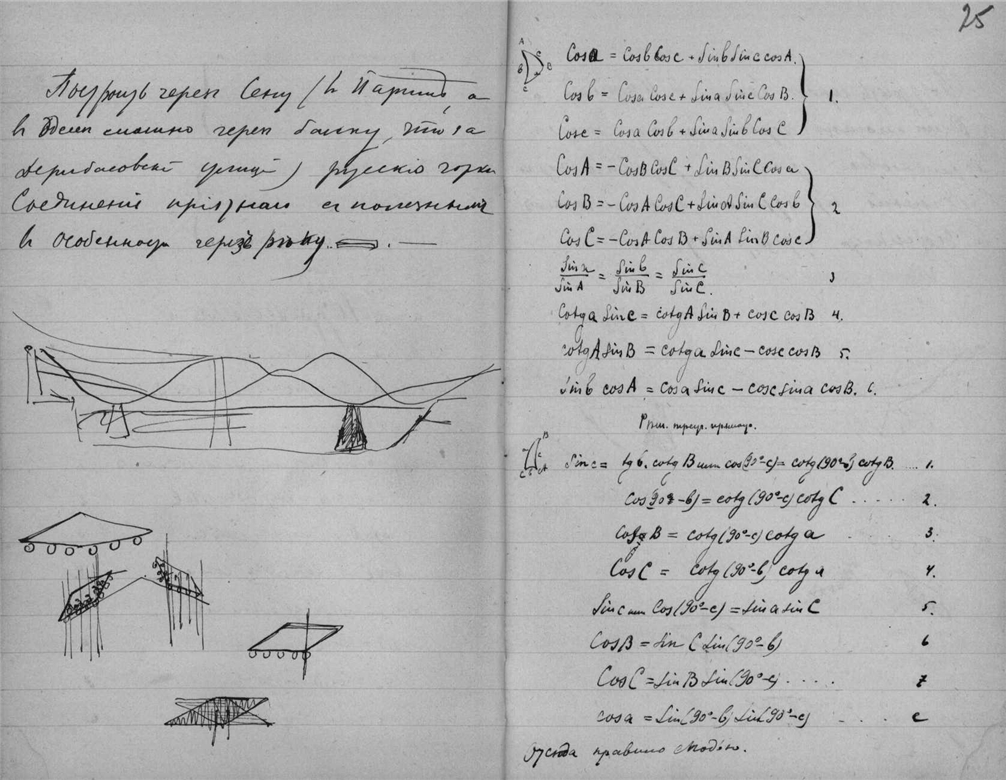 Построить через Сену (въ Парижѣ, а
въ Одессѣ можно через балку, что за
Дерибасовской улицей) русскія горки
Соединенія признаны полезными
въ особенности через рѣку. —
25
A
B
C
Cos a = Cos b Cos c + Sin b Sin c cos A.
Cos b = Cos a Cos c + Sin a Sin c Cos B.
Cos c = Cos a Cos b + Sin a Sin b Cos C
1.
Cos A = - Cos B Cos C + Sin B Sin C Cos a
Cos B = - Cos A Cos C + Sin A Sin C Cos b
Cos C = - Cos A Cos B + Sin A Sin B cos c
2
Sin a / Sin A = Sin b / Sin B = Sin c / Sin C. 3
Cotg a Sin c = cotg A Sin B + cos c cos B 4.
cotg A Sin B = cotg a Sin c - cos c cos B 5.
Sin b cos A = Cos a Sin c - cos c sin a cos B. 6.
Рѣш. треуг. прямоуг.
Sin c = tg b. cotg B или cos(90°-c) = cotg(90°-b) cotg B. .... 1.
cos(90°-b) = cotg(90°-c) cotg C ..... 2.
Cos B = cotg(90°-c) cotg a 3.
Cos C = cotg(90°-b) cotg a 4.
Sin c или Cos(90°-c) = sin a sin C 5.
Cos B = Sin C Sin(90°-b) 6
Cos C = Sin B Sin(90°-c) .... 7
cos a = Sin(90°-b) Sin(90°-c) ....
Отсюда правило Модю.